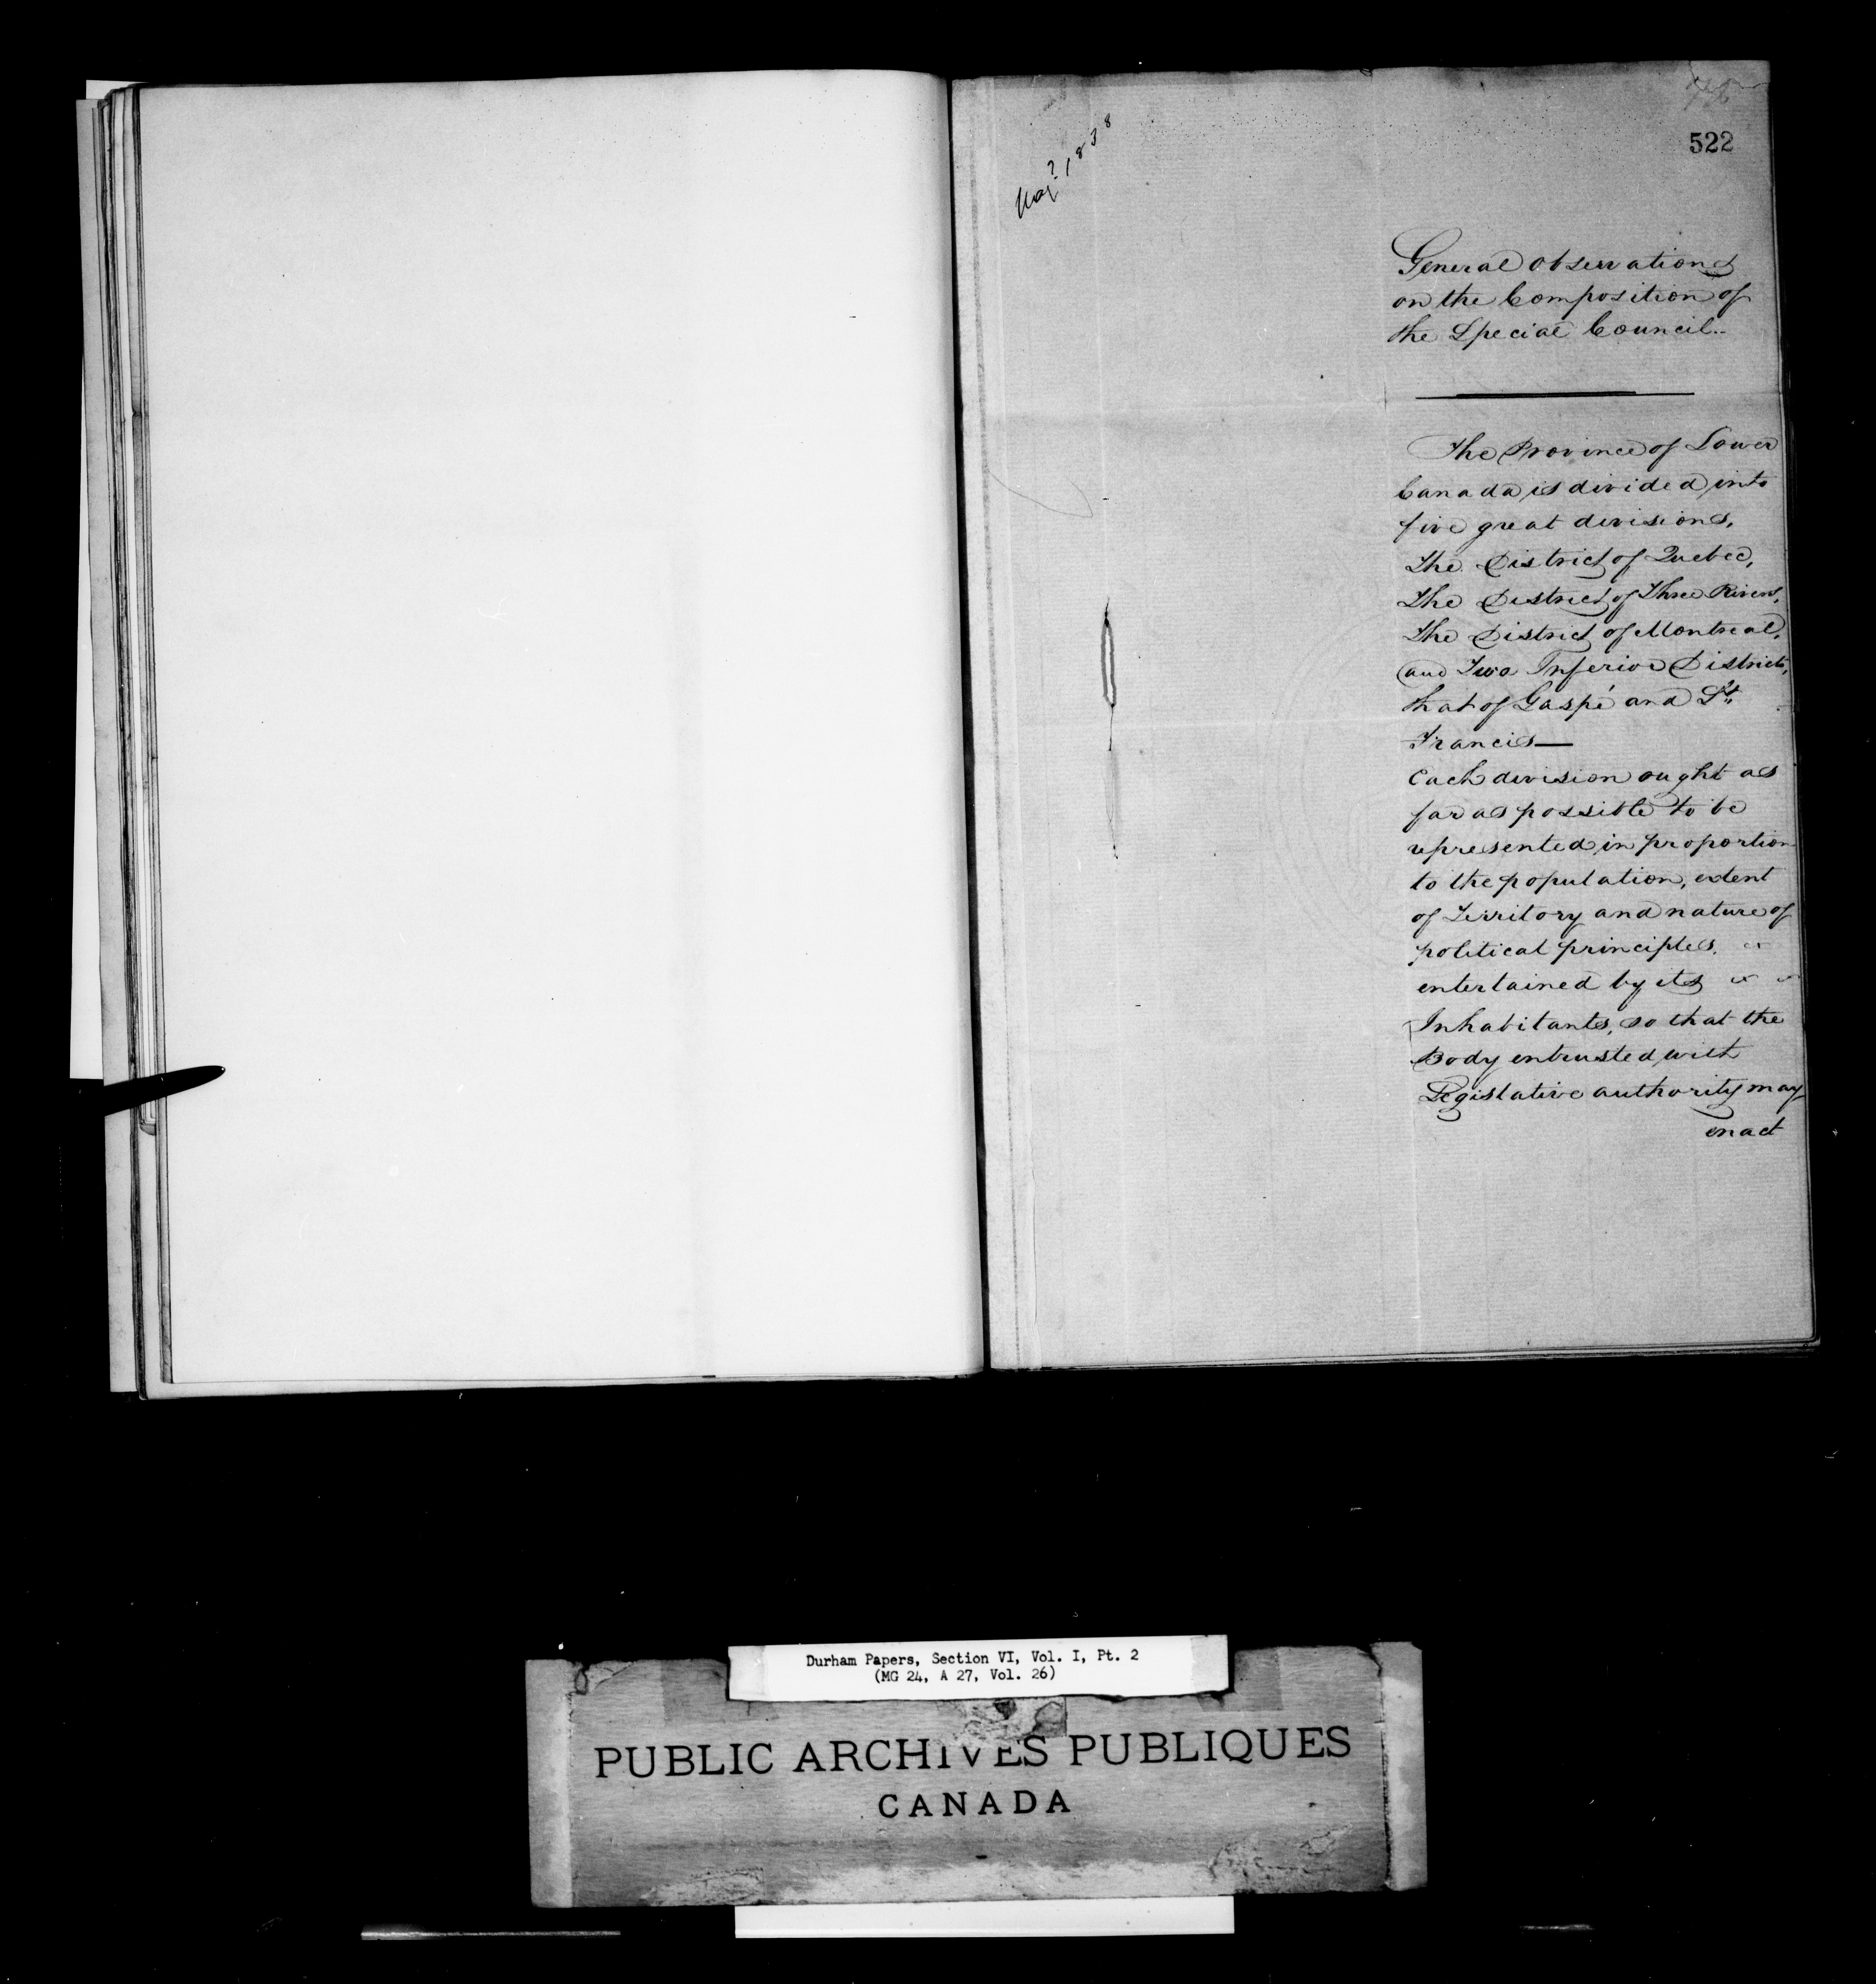 May? 1838
522
General Observations
on the Composition of
the Special Council..
The Province of Lower
Canada is divided into
five great divisions,
The District of Quebec,
The District of Three Rivers,
The District of Montreal,
and Two Inferior Districts,
that of Gaspé and St.
Francis—
Each division ought as
far as possible to be
represented in proportion
to the population, extent
of Territory and nature of
political principles
entertained by its
Inhabitants, so that the
Body entrusted with
Legislative authority may
enact
Durham Papers, Section VI, Vol. I, Pt. 2
(MG 24, A 27, Vol. 26)
PUBLIC ARCHIVES PUBLIQUES
CANADA